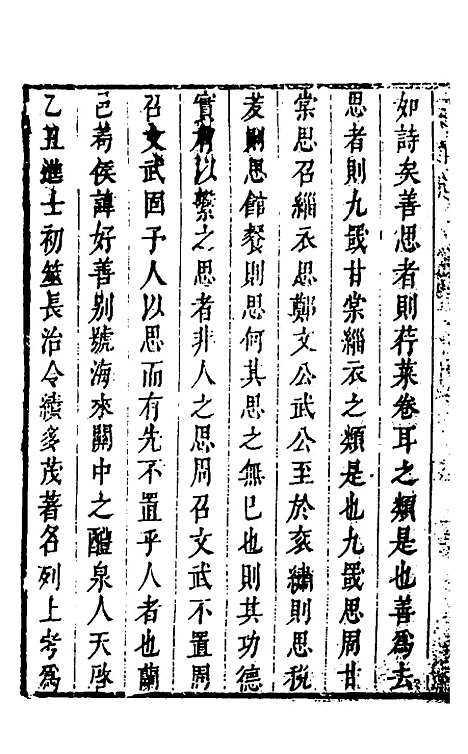 如詩矣善思者則荇菜卷耳之類是也善為去
思者則九罭甘棠緇衣之類是也九罭思周甘
棠思召緇衣思鄭文公武公至於衮繡則思稅
茇則思館餐則思何其思之無已也則其功德
實有以繫之思者非人之思周召文武不置周
召文武固予人以思而有先不置乎人者也蘭
已若侯諱好善别號海來關中之醴泉人天啓
乙丑進士初筮長治令績多茂著名列上考為